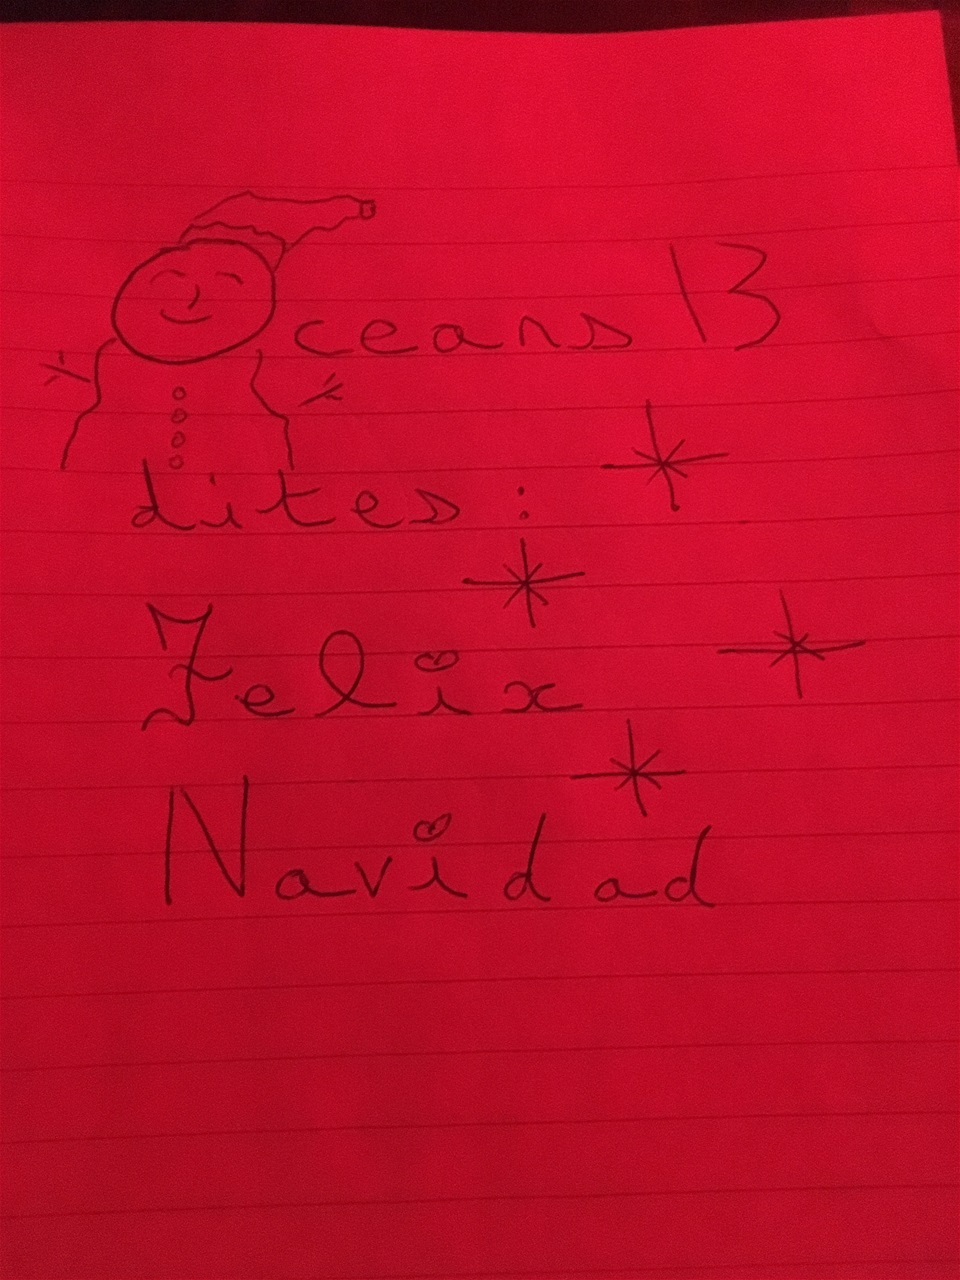 Oceans 13
dites :
Felix
Navidad